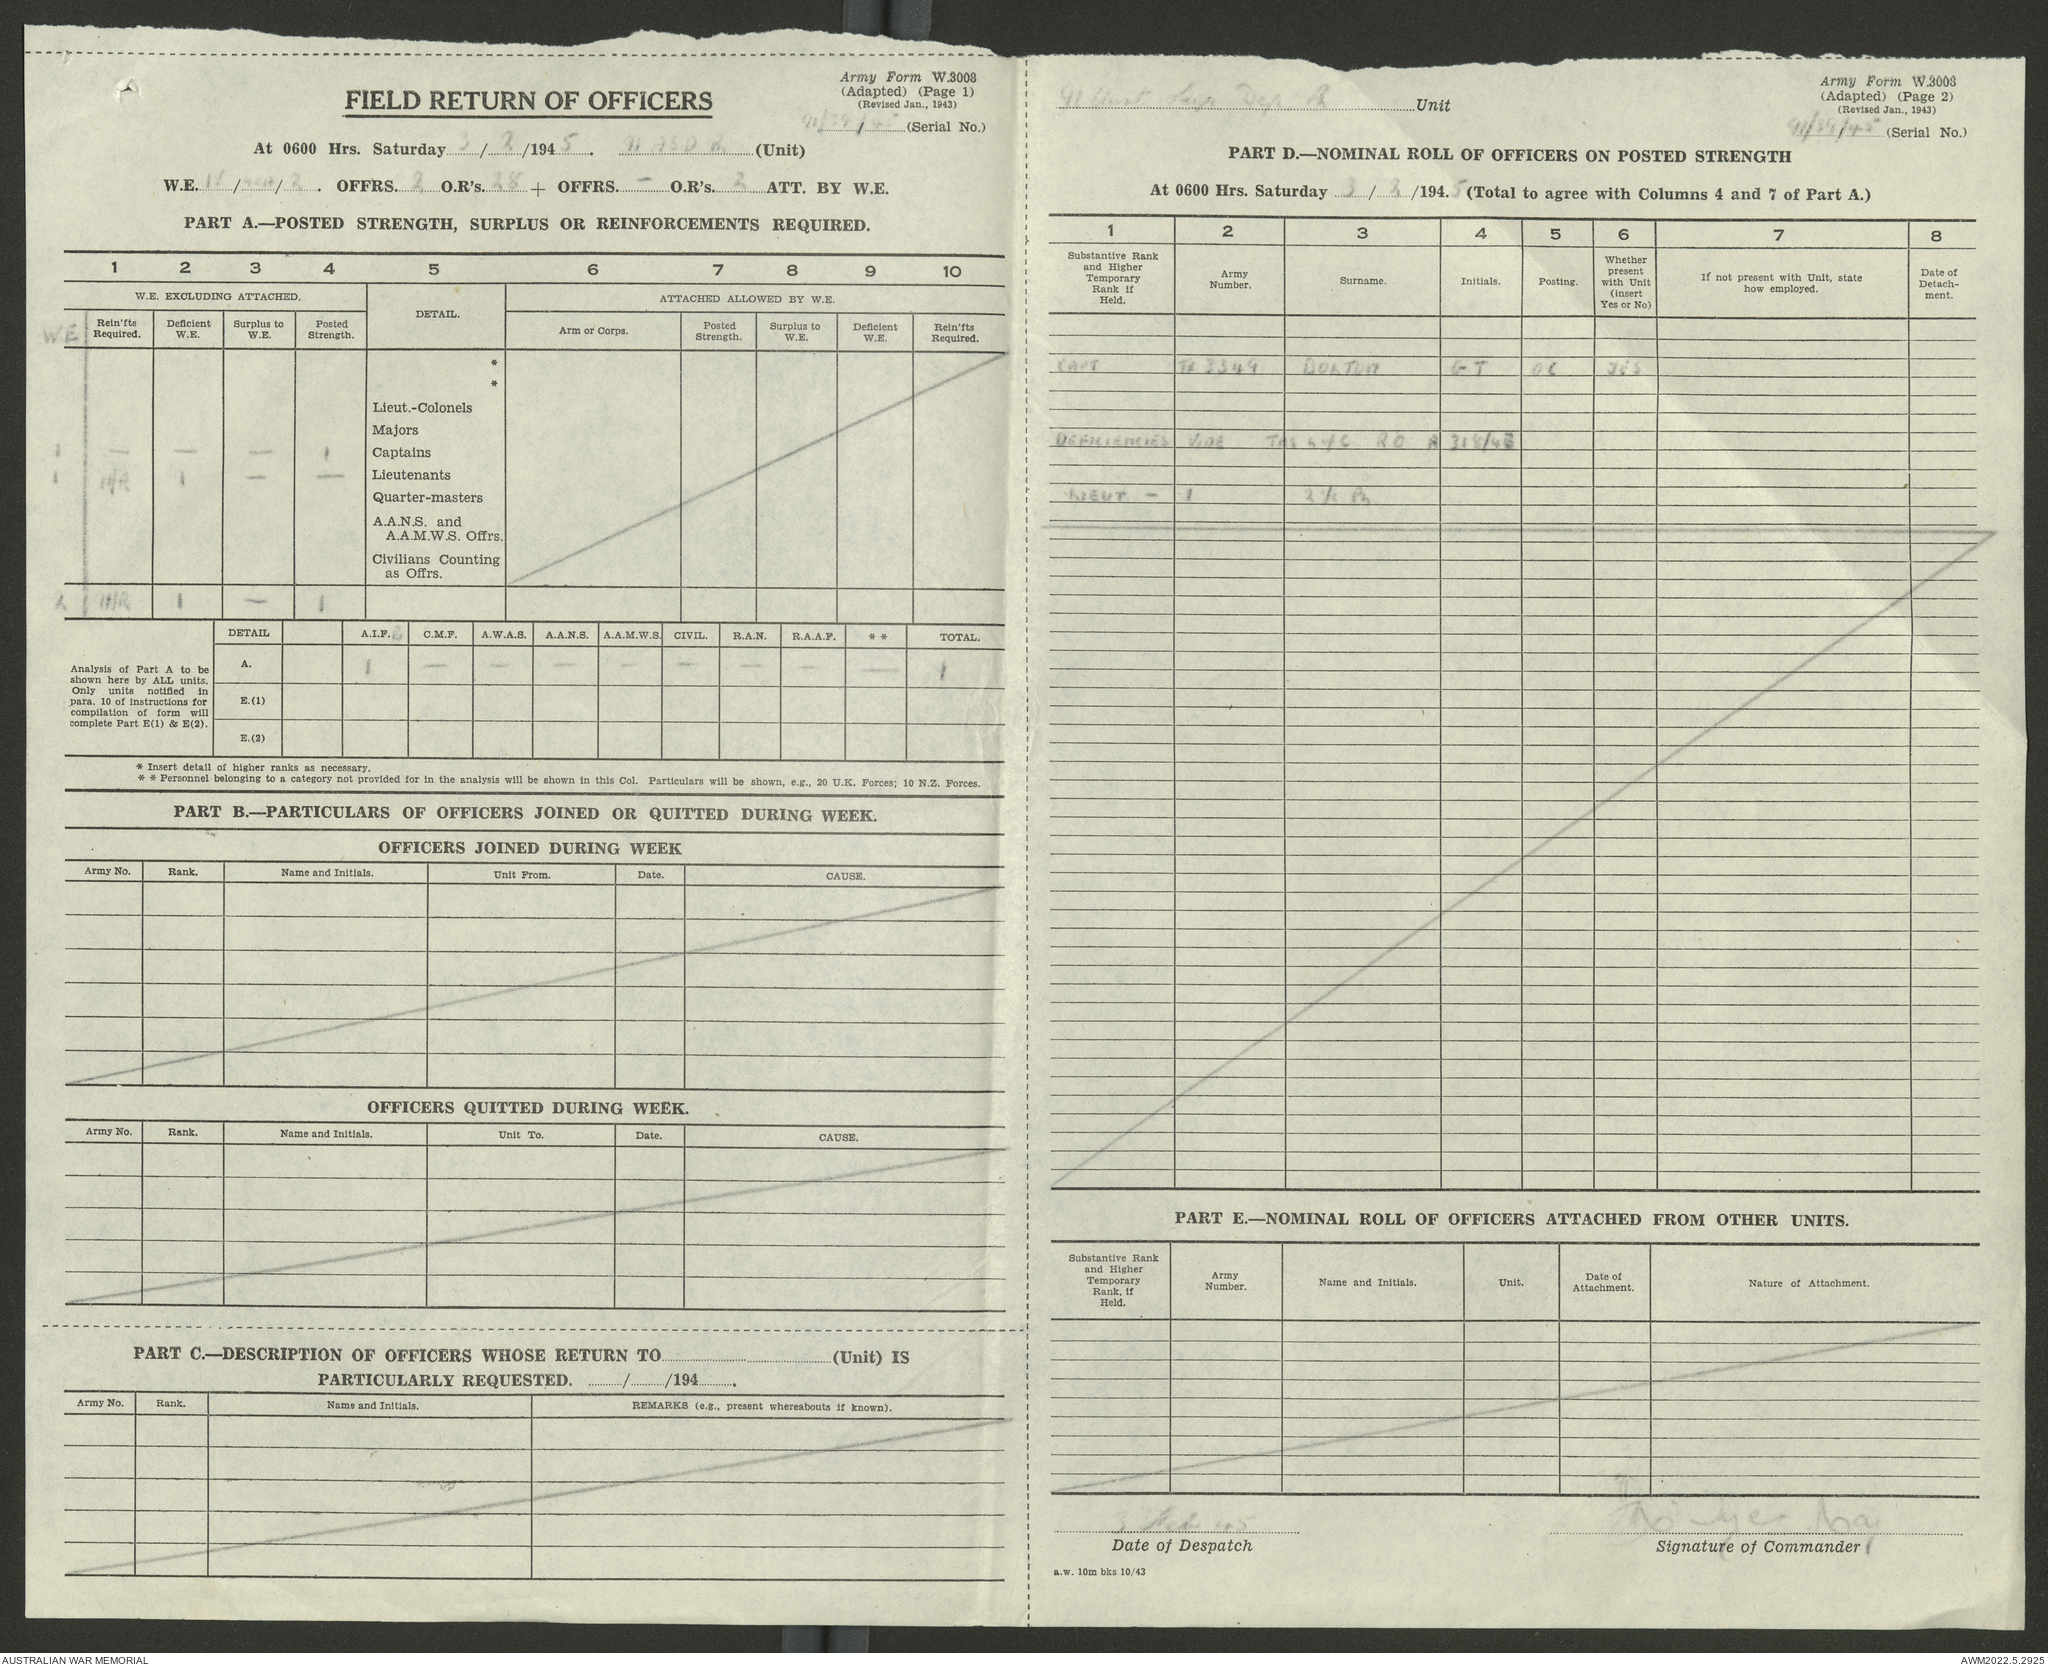 Army Form W.3008
(Adapted) (Page 1)
(Revised Jan., 1943)
FIELD RETURN OF OFFICERS
91/39/45 (Serial No.)
At 0600 Hrs. Saturday 3/2/1945. 91 ASD (Unit)
W.E. / /2. OFFRS. 2 O.R's. 28 + OFFRS. — O.R's. 2 ATT. BY W.E.
PART A.—POSTED STRENGTH, SURPLUS OR REINFORCEMENTS REQUIRED.
1 2 3 4 5 6 7 8 9 10
W.E. EXCLUDING ATTACHED. DETAIL. ATTACHED ALLOWED BY W.E.
W.E. Rein'fts Required. Deficient W.E. Surplus to W.E. Posted Strength. Arm or Corps. Posted Strength. Surplus to W.E. Deficient W.E. Rein'fts Required.
*
*
Lieut.-Colonels
Majors
1 — — — 1 Captains
1 1 — — Lieutenants
Quarter-masters
A.A.N.S. and
A.A.M.W.S. Offrs.
Civilians Counting
as Offrs.
2 1 — 1
DETAIL A.I.F. C.M.F. A.W.A.S. A.A.N.S. A.A.M.W.S. CIVIL. R.A.N. R.A.A.F. * * TOTAL.
Analysis of Part A to be
shown here by ALL units.
Only units notified in
para. 10 of instructions for
compilation of form will
complete Part E(1) & E(2).
A. 1 — — — — — — — — 1
E.(1)
E.(2)
* Insert detail of higher ranks as necessary.
* * Personnel belonging to a category not provided for in the analysis will be shown in this Col. Particulars will be shown, e.g., 20 U.K. Forces; 10 N.Z. Forces.
PART B.—PARTICULARS OF OFFICERS JOINED OR QUITTED DURING WEEK.
OFFICERS JOINED DURING WEEK
Army No. Rank. Name and Initials. Unit From. Date. CAUSE.
OFFICERS QUITTED DURING WEEK.
Army No. Rank. Name and Initials. Unit To. Date. CAUSE.
PART C.—DESCRIPTION OF OFFICERS WHOSE RETURN TO (Unit) IS
PARTICULARLY REQUESTED. / /194 .
Army No. Rank. Name and Initials. REMARKS (e.g., present whereabouts if known).
Army Form W.3008
(Adapted) (Page 2)
(Revised Jan., 1943)
91 Aust Unit
91/39/45 (Serial No.)
PART D.—NOMINAL ROLL OF OFFICERS ON POSTED STRENGTH
At 0600 Hrs. Saturday 3/2/194.5 (Total to agree with Columns 4 and 7 of Part A.)
1 2 3 4 5 6 7 8
Substantive Rank and Higher Temporary Rank if Held. Army Number. Surname. Initials. Posting. Whether present with Unit (insert Yes or No) If not present with Unit, state how employed. Date of Detach-ment.
CAPT TX 3349 BOLTON G T OC YES
DEFICIENCIES VIDE TAS L of C RO A 318/43
LIEUT — 1
PART E.—NOMINAL ROLL OF OFFICERS ATTACHED FROM OTHER UNITS.
Substantive Rank and Higher Temporary Rank, if Held. Army Number. Name and Initials. Unit. Date of Attachment. Nature of Attachment.
3 Feb 45
Date of Despatch
Maj
Signature of Commander
a.w. 10m bks 10/43
AUSTRALIAN WAR MEMORIAL
AWM2022.5.2925